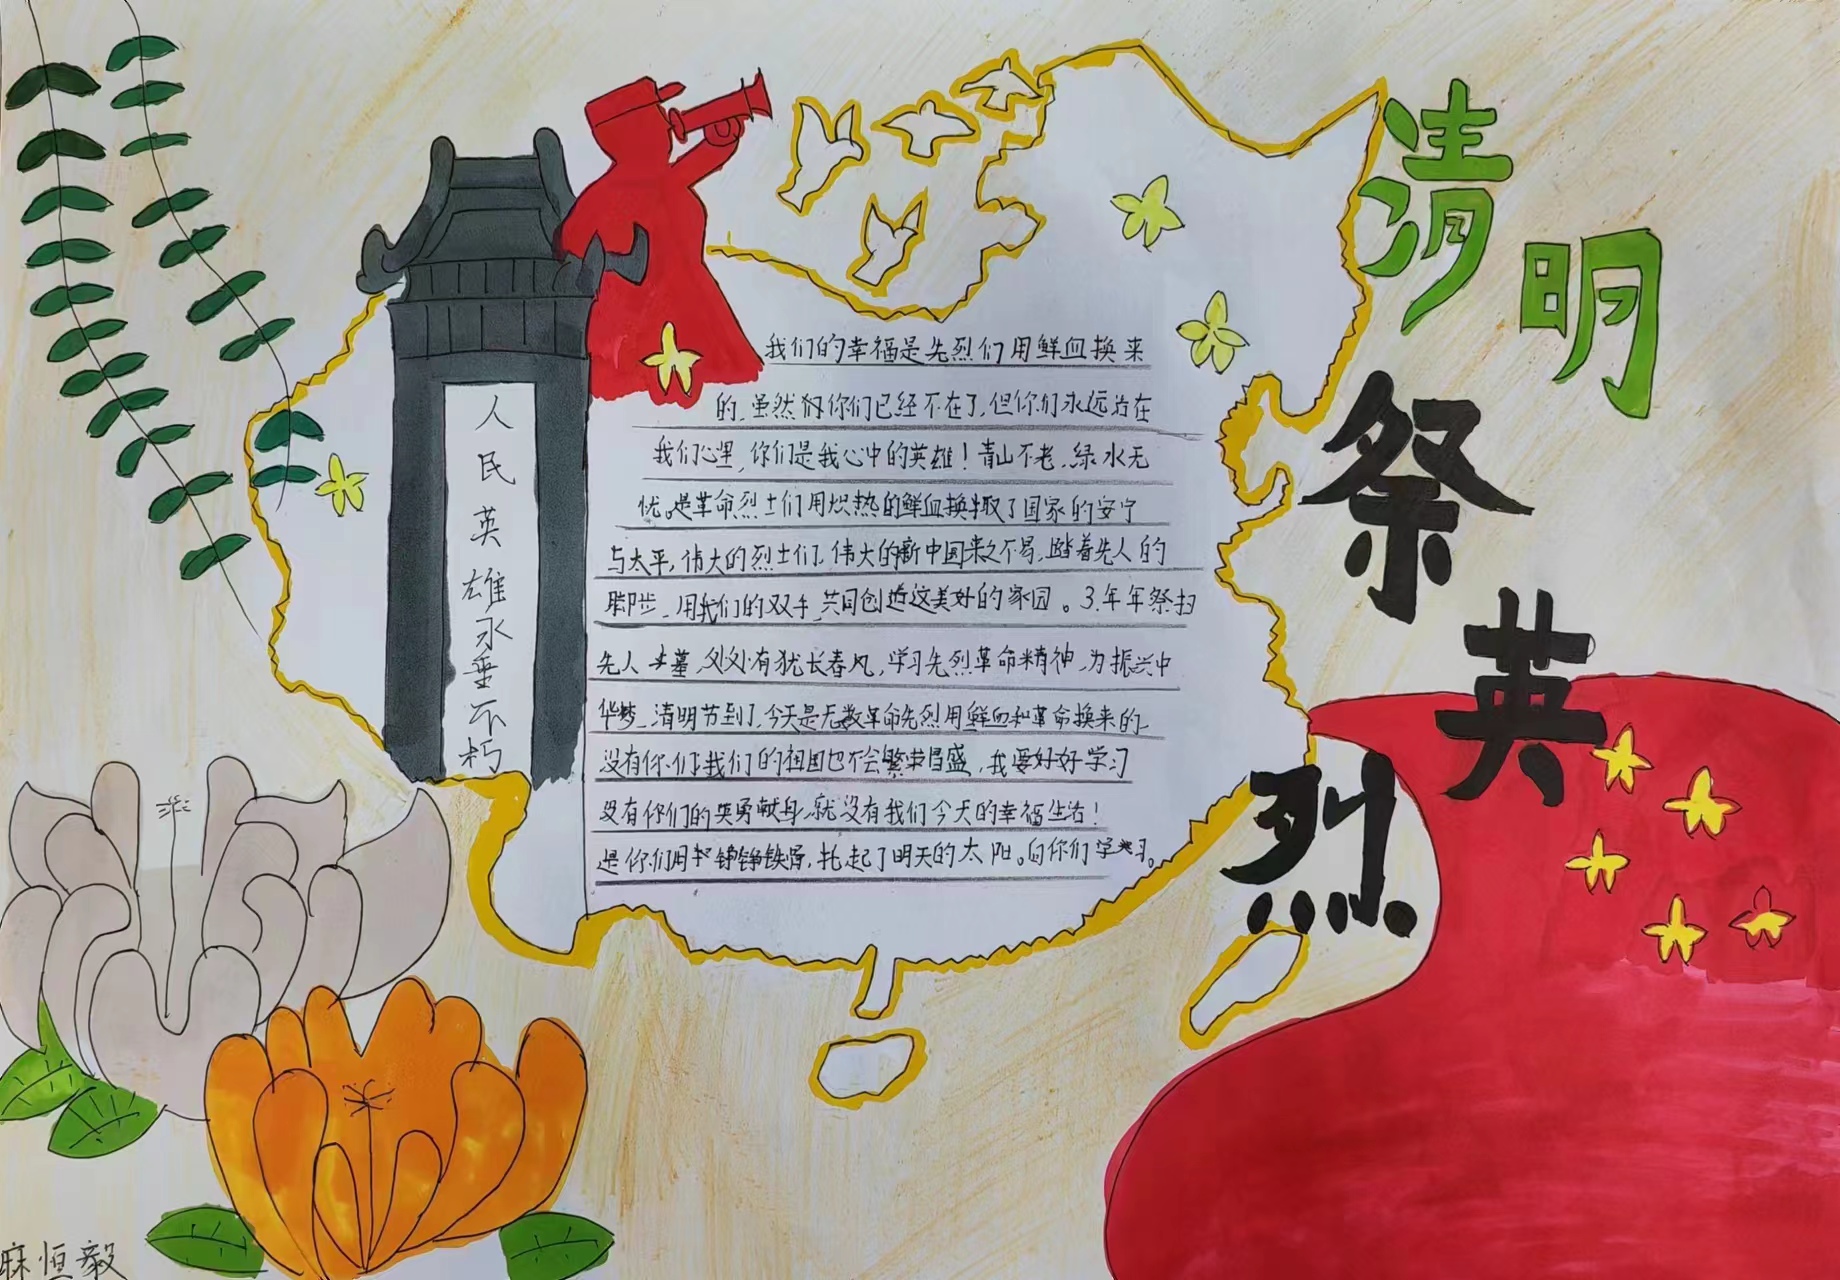 清明
祭英烈
人民英雄永垂不朽
我们的幸福是先烈们用鲜血换来
的,虽然你们已经不在了,但你们永远活在
我们心里,你们是我心中的英雄!青山不老,绿水无
忧。是革命烈士们用炽热的鲜血换取了国家的安宁
与太平,伟大的烈士们,伟大的新中国来之不易,踏着先人的
脚步,用我们的双手,共同创造这美好的家园。3.年年祭扫
先人墓,处处有犹长春风,学习先烈革命精神,为振兴中
华梦,清明节到了,今天是无数革命先烈用鲜血和革命换来的
没有你们,我们的祖国也不会繁荣昌盛,我要好好学习
没有你们的英勇献身,就没有我们今天的幸福生活!
是你们用铮铮铁骨,托起了明天的太阳。向你们学习。
麻恒毅